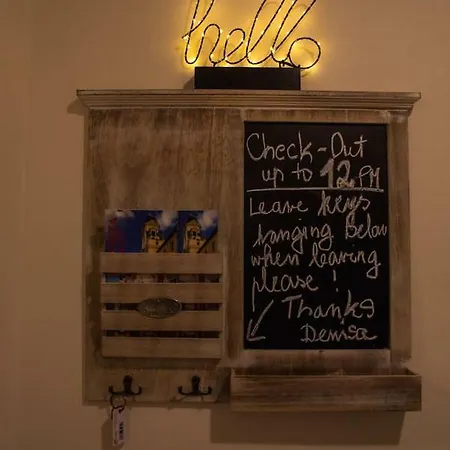 hello
Check-Out
up to 12 PM
Leave keys
hanging below
when leaving
please!
Thanks
Denisa